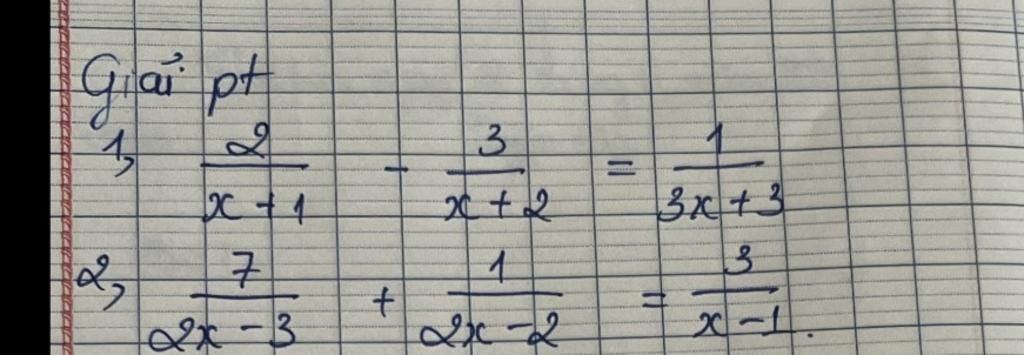 Giải pt
1, 2/(x + 1) - 3/(x + 2) = 1/(3x + 3)
2, 7/(2x - 3) + 1/(2x - 2) = 3/(x - 1).